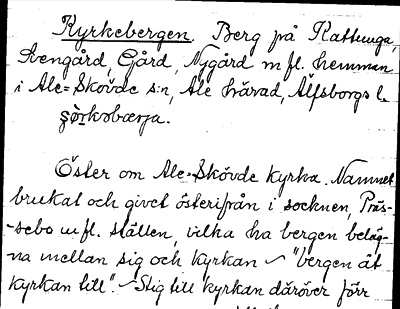 Kyrkebergen. Berg på Kattunga,
Svengård, Gård, Nygård m fl. hemman
i Ale-Skövde s:n, Ale härad, Älfsborgs l.
Öster om Ale-Skövde kyrka. Namnet
brukat och givet österifrån i socknen, Präs-
-sebo m.fl. ställen, vilka ha bergen beläg-
na mellan sig och kyrkan ~ "bergen åt
kyrkan till". ~ Stig till kyrkan däröver förr